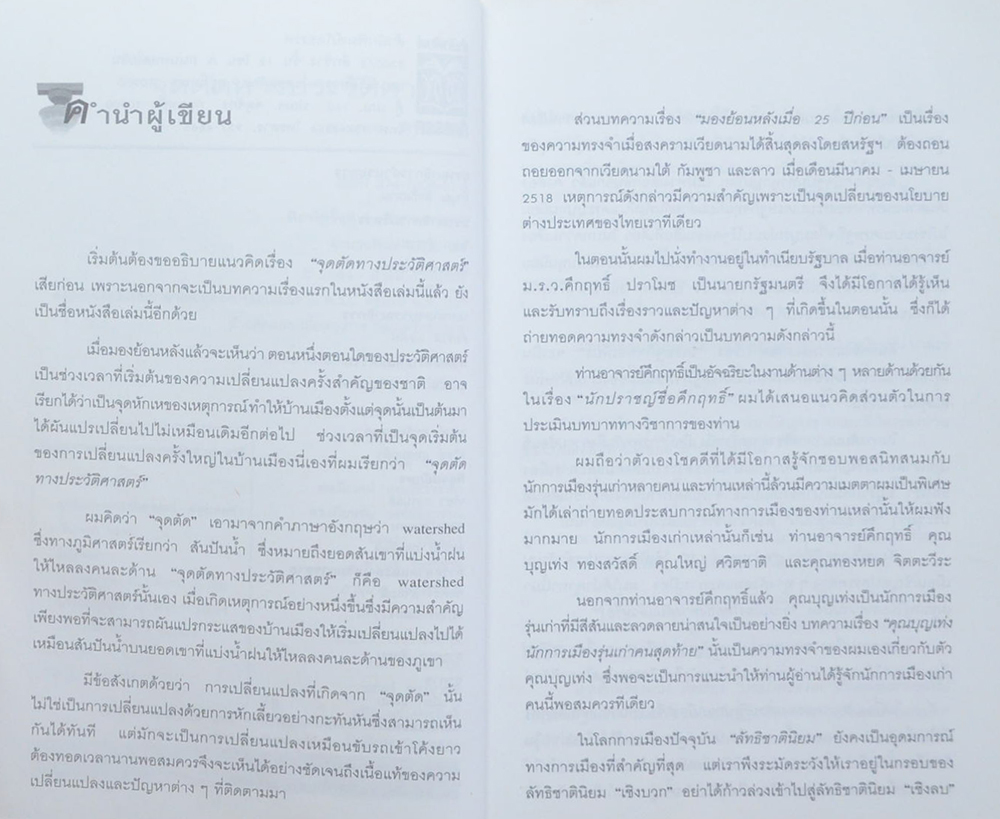 คำนำผู้เขียน
เริ่มต้นต้องขออธิบายแนวคิดเรื่อง “จุดตัดทางประวัติศาสตร์”
เสียก่อน เพราะนอกจากจะเป็นบทความเรื่องแรกในหนังสือเล่มนี้แล้ว ยัง
เป็นชื่อหนังสือเล่มนี้อีกด้วย
เมื่อมองย้อนหลังแล้วจะเห็นว่า ตอนหนึ่งตอนใดของประวัติศาสตร์
เป็นช่วงเวลาที่เริ่มต้นของความเปลี่ยนแปลงครั้งสำคัญของชาติ อาจ
เรียกได้ว่าเป็นจุดหักเหของเหตุการณ์ทำให้บ้านเมืองตั้งแต่จุดนั้นเป็นต้นมา
ได้ผันแปรเปลี่ยนไปไม่เหมือนเดิมอีกต่อไป ช่วงเวลาที่เป็นจุดเริ่มต้น
ของการเปลี่ยนแปลงครั้งใหญ่ในบ้านเมืองนี่เองที่ผมเรียกว่า “จุดตัด
ทางประวัติศาสตร์”
ผมคิดว่า “จุดตัด” เอามาจากคำภาษาอังกฤษว่า watershed
ซึ่งทางภูมิศาสตร์เรียกว่า สันปันน้ำ ซึ่งหมายถึงยอดสันเขาที่แบ่งน้ำฝน
ให้ไหลลงคนละด้าน “จุดตัดทางประวัติศาสตร์” ก็คือ watershed
ทางประวัติศาสตร์นั้นเอง เมื่อเกิดเหตุการณ์อย่างหนึ่งขึ้นซึ่งมีความสำคัญ
เพียงพอที่จะสามารถผันแปรกระแสของบ้านเมืองให้เริ่มเปลี่ยนแปลงไปได้
เหมือนสันปันน้ำบนยอดเขาที่แบ่งน้ำฝนให้ไหลลงคนละด้านของภูเขา
มีข้อสังเกตด้วยว่า การเปลี่ยนแปลงที่เกิดจาก “จุดตัด” นั้น
ไม่ใช่เป็นการเปลี่ยนแปลงด้วยการหักเลี้ยวอย่างกะทันหันซึ่งสามารถเห็น
กันได้ทันที แต่มักจะเป็นการเปลี่ยนแปลงเหมือนขับรถเข้าโค้งยาว
ต้องทอดเวลานานพอสมควรจึงจะเห็นได้อย่างชัดเจนถึงเนื้อแท้ของความ
เปลี่ยนแปลงและปัญหาต่าง ๆ ที่ติดตามมา
ส่วนบทความเรื่อง “มองย้อนหลังเมื่อ 25 ปีก่อน” เป็นเรื่อง
ของความทรงจำเมื่อสงครามเวียดนามได้สิ้นสุดลงโดยสหรัฐฯ ต้องถอน
ถอยออกจากเวียดนามใต้ กัมพูชา และลาว เมื่อเดือนมีนาคม - เมษายน
2518 เหตุการณ์ดังกล่าวมีความสำคัญเพราะเป็นจุดเปลี่ยนของนโยบาย
ต่างประเทศของไทยเราทีเดียว
ในตอนนั้นผมไปนั่งทำงานอยู่ในทำเนียบรัฐบาล เมื่อท่านอาจารย์
ม.ร.ว.คึกฤทธิ์ ปราโมช เป็นนายกรัฐมนตรี จึงได้มีโอกาสได้รู้เห็น
และรับทราบถึงเรื่องราวและปัญหาต่าง ๆ ที่เกิดขึ้นในตอนนั้น ซึ่งก็ได้
ถ่ายทอดความทรงจำดังกล่าวเป็นบทความดังกล่าวนี้
ท่านอาจารย์คึกฤทธิ์เป็นอัจฉริยะในงานด้านต่าง ๆ หลายด้านด้วยกัน
ในเรื่อง “นักปราชญ์ชื่อคึกฤทธิ์” ผมได้เสนอแนวคิดส่วนตัวในการ
ประเมินบทบาททางวิชาการของท่าน
ผมถือว่าตัวเองโชคดีที่ได้มีโอกาสรู้จักชอบพอสนิทสนมกับ
นักการเมืองรุ่นเก่าหลายคน และท่านเหล่านี้ล้วนมีความเมตตาผมเป็นพิเศษ
มักได้เล่าถ่ายทอดประสบการณ์ทางการเมืองของท่านเหล่านั้นให้ผมฟัง
มากมาย นักการเมืองเก่าเหล่านั้นก็เช่น ท่านอาจารย์คึกฤทธิ์ คุณ
บุญเท่ง ทองสวัสดิ์ คุณใหญ่ ศวิตชาติ และคุณทองหยด จิตตะวีระ
นอกจากท่านอาจารย์คึกฤทธิ์แล้ว คุณบุญเท่งเป็นนักการเมือง
รุ่นเก่าที่มีสีสันและลวดลายน่าสนใจเป็นอย่างยิ่ง บทความเรื่อง “คุณบุญเท่ง
นักการเมืองรุ่นเก่าคนสุดท้าย” นั้นเป็นความทรงจำของผมเองเกี่ยวกับตัว
คุณบุญเท่ง ซึ่งพอจะเป็นการแนะนำให้ท่านผู้อ่านได้รู้จักนักการเมืองเก่า
คนนี้พอสมควรทีเดียว
ในโลกการเมืองปัจจุบัน “ลัทธิชาตินิยม” ยังคงเป็นอุดมการณ์
ทางการเมืองที่สำคัญที่สุด แต่เราพึงระมัดระวังให้เราอยู่ในกรอบของ
ลัทธิชาตินิยม “เชิงบวก” อย่าได้ก้าวล่วงเข้าไปสู่ลัทธิชาตินิยม “เชิงลบ”